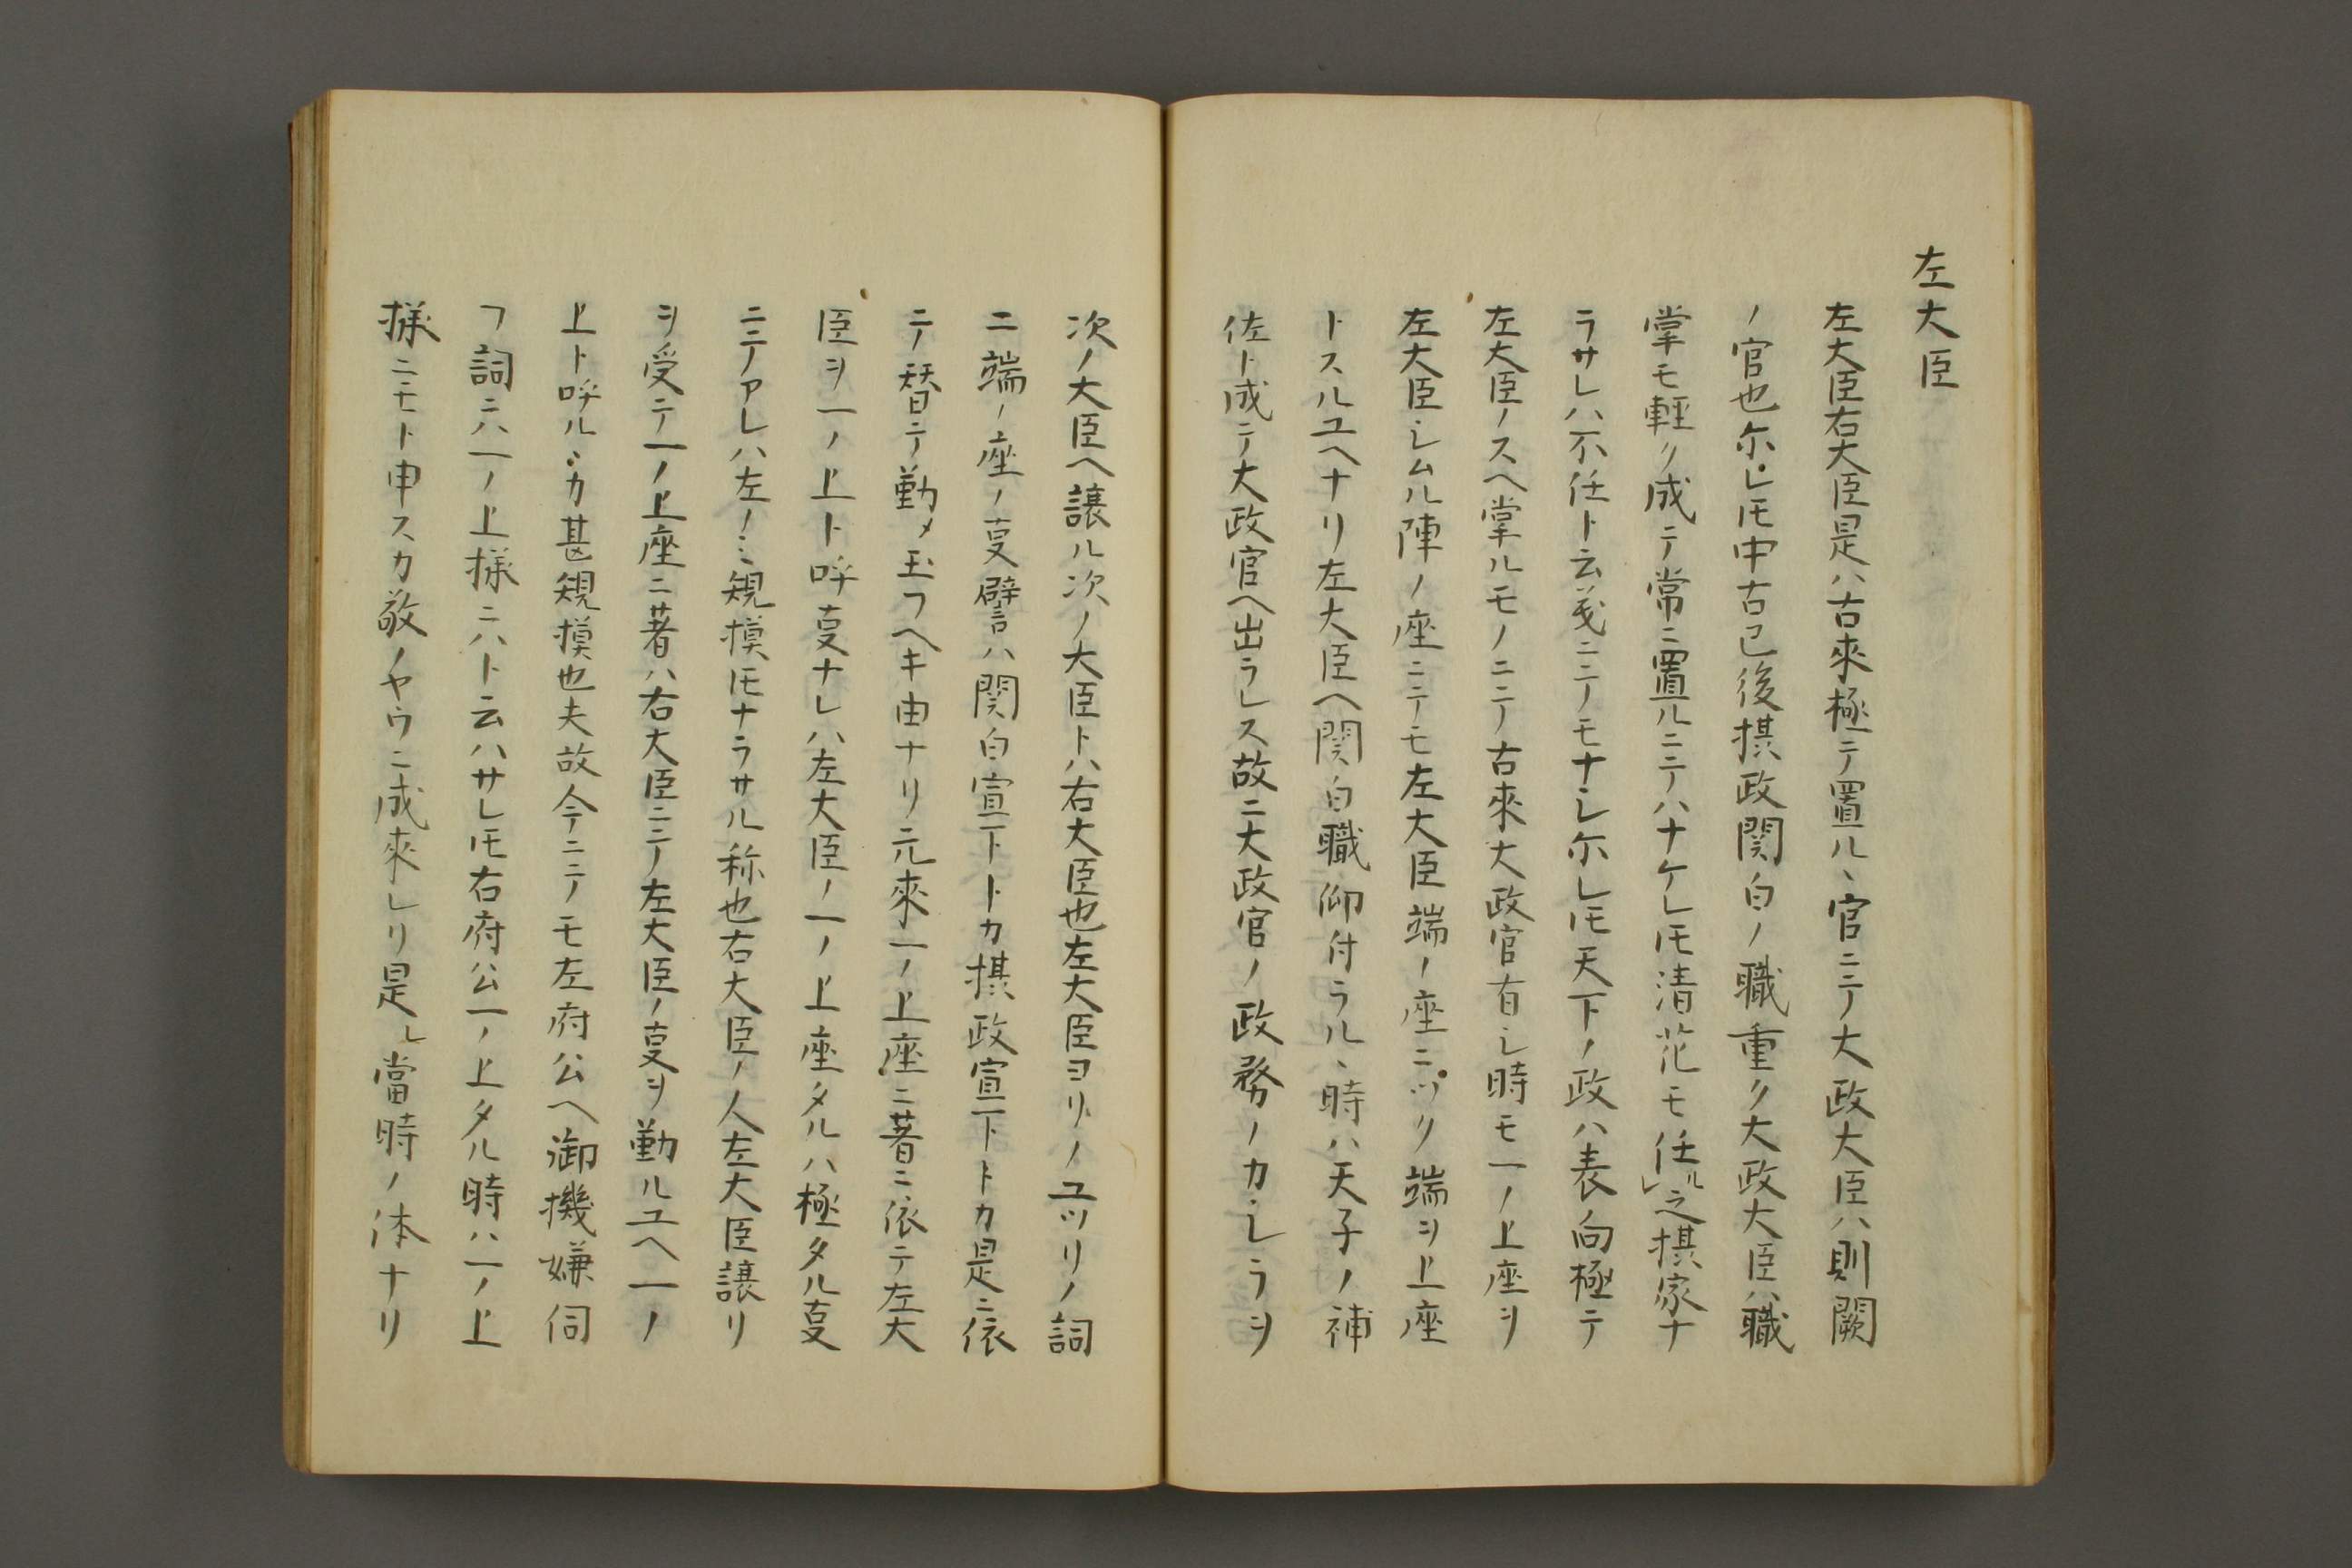 左大臣
左大臣右大臣是ハ古來極テ置ルヽ官ニテ大政大臣ハ則闕
ノ官也尓レ𪜈中古已後摂政関白ノ職重ク大政大臣ハ職
掌モ輕ク成テ常ニ置ルニテハナケレ𪜈清花モ任ルレ之摂家ナ
ラサレハ不任ト云義ニテモナシ尓レ𪜈天下ノ政ハ表向極テ
左大臣ノスヘ掌ルモノニテ古來大政官有シ時モ一ノ上座ヲ
左大臣シムル陣ノ座ニテモ左大臣端ノ座ニツク端ヲ上座
トスルユヘナリ左大臣ヘ関白職仰付ラルヽ時ハ天子ノ補
佐ト成テ大政官ヘ出ラレス故ニ大政官ノ政務ノカシラヲ
次ノ大臣ヘ譲ル次ノ大臣トハ右大臣也左大臣ヨリノユツリノ詞
ニ端ノ座ノ㕝譬ハ関白宣下トカ摂政宣下トカ是ニ依
テ替テ勤メ玉フヘキ由ナリ元來一ノ上座ニ著ニ依テ左大
臣ヲ一ノ上ト呼㕝ナレハ左大臣ノ一ノ上座タルハ極タル㕝
ニテアレハ左ノミ規摸𪜈ナラサル称也右大臣ノ人左大臣譲リ
ヲ受テ一ノ上座ニ著ハ右大臣ニテ左大臣ノ㕝ヲ勤ルユヘ一ノ
上ト呼ルヽカ甚規摸也夫故今ニテモ左府公ヘ御機嫌伺
フ詞ニハ一ノ上様ニハト云ハサレ𪜈右府公一ノ上タル時ハ一ノ上
様ニモト申スカ敬ノヤウニ成來レリ是レ當時ノ体ナリ